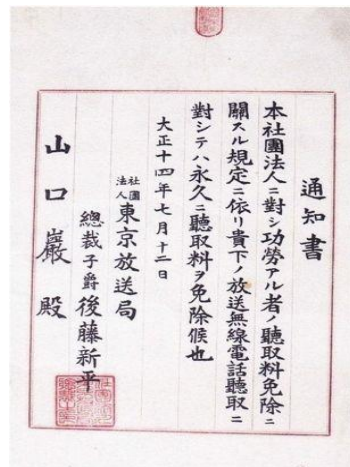 通知書
本社團法人ニ對シ功勞アル者ノ聽取料免除ニ
關スル規定ニ依リ貴下ノ放送無線電話聽取ニ
對シテハ永久ニ聽取料ヲ免除候也
大正十四年七月十二日
社團法人東京放送局
總裁子爵後藤新平
山口巖殿